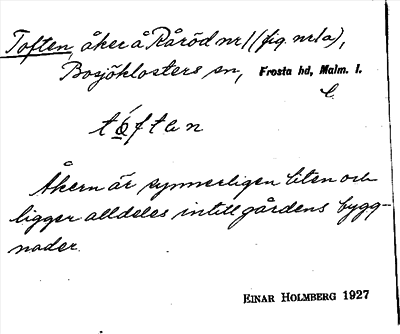 Toften, åker å Råröd nr 1 (fig. nr 1a),
Bosjöklosters sn, Frosta hd, Malm. l.
t
Åkern är synnerligen liten och
ligger alldeles intill gårdens bygg-
nader.
EINAR HOLMBERG 1927